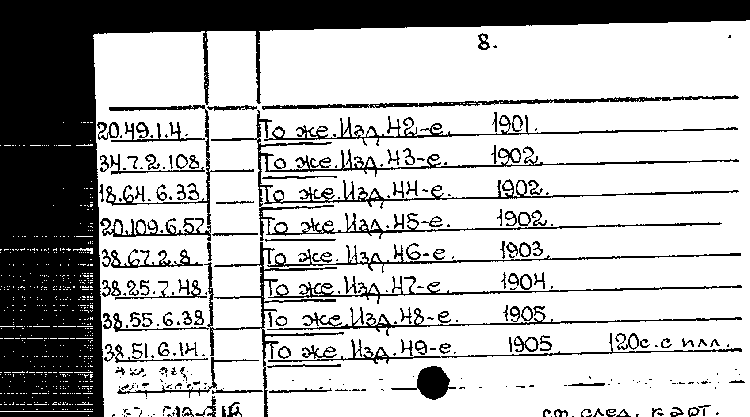 8.
20.49.1.4. То же. Изд. 42-е. 1901.
34.7.2.108. То же. Изд. 43-е. 1902.
18.64.6.33. То же. Изд. 44-е. 1902.
20.109.6.57. То же. Изд. 45-е. 1902.
38.67.2.8. То же. Изд. 46-е. 1903.
38.25.7.48. То же. Изд. 47-е. 1904.
38.55.6.38. То же. Изд. 48-е. 1905.
38.51.6.14. То же. Изд. 49-е. 1905. 120с. с илл.
см. след. карт.